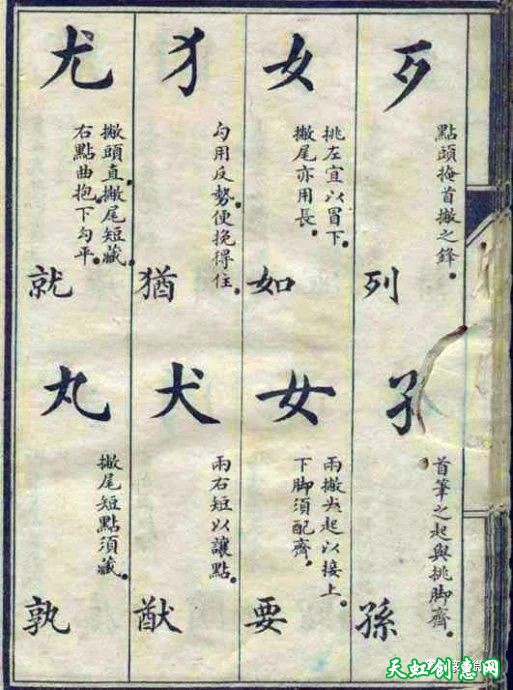 歹
點頭掩首撇之鋒。
列
女
挑左宜以冒下。
撇尾亦用長。
如
犭
勾用反勢便挽得住。
猶
尤
撇頭直。撇尾短藏。
右點曲抱。下勾平。
就
孑
首筆之起與挑脚齊。
孫
女
兩撇尖起以接上。
下脚須配齊。
要
犬
兩右短以讓點。
猷
丸
撇尾短點須藏。
孰
天虹创意网